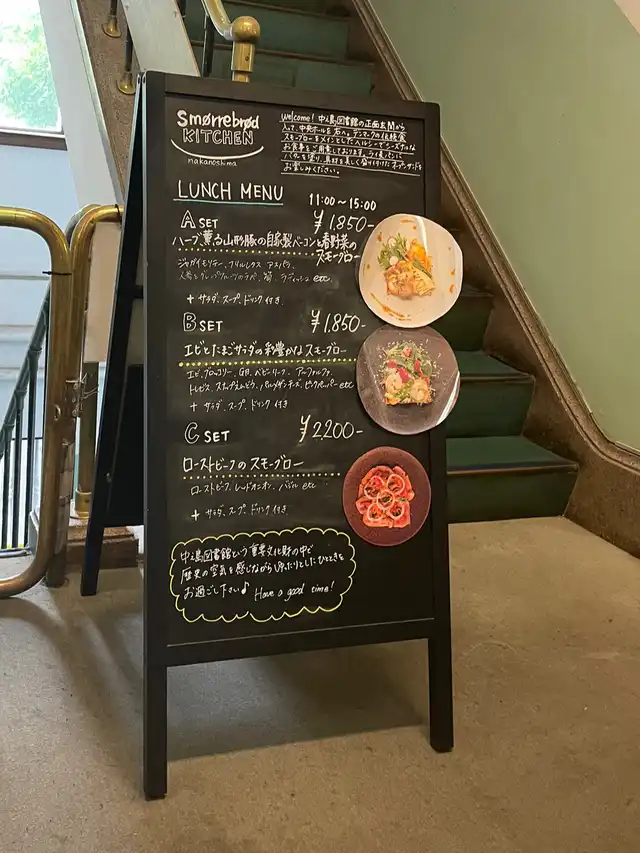 Smørrebrød
KITCHEN
nakanoshima
Welcome! 中之島図書館の正面玄関から
入って、中央ホールを右へ。デンマークの伝統食
スモーブローをメインとしたヘルシーでシーズナルな
お食事をご用意しております。ライ麦パンに
バターを塗り、具材を美しく盛り付けたオープンサンドを
お楽しみください。
LUNCH MENU
11:00～15:00
A SET ¥1,850-
ハーブ薫る山形豚の自家製ベーコンと春野菜の
スモーブロー
ジャガイモリヤー、フリルレタス アスパラ、
ラディッシュ etc
+ サラダ、スープ、ドリンク付き
B SET ¥1,850-
エビとたまごサラダの彩豊かなスモーブロー
エビ、ブロッコリー、卵、ベビーリーフ、アーモンド
トレビス、スナップえんどう、パルメザンチーズ、ピンクペッパー etc
+ サラダ、スープ、ドリンク付き
C SET ¥2200-
ローストビーフのスモーブロー
ローストビーフ、レッドオニオン、バジル etc
+ サラダ、スープ、ドリンク付き
中之島図書館という重要文化財の中で
歴史の空気を感じながらゆったりとしたひとときを
お過ごし下さい♪ Have a good time!